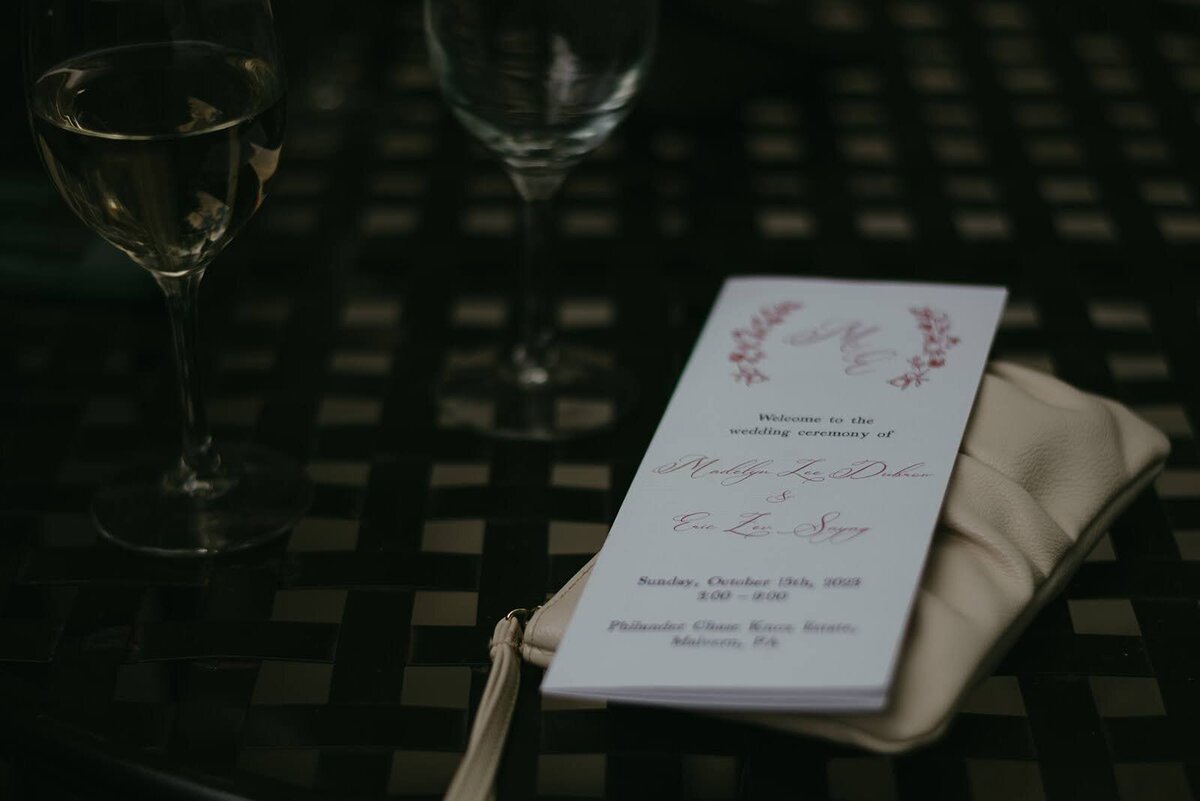 M&E
Welcome to the
wedding ceremony of
Madelyn Lee Dubrow
&
Eric Lev Sayag
Sunday, October 15th, 2023
Philander Chase Knox Estate,
Malvern, PA